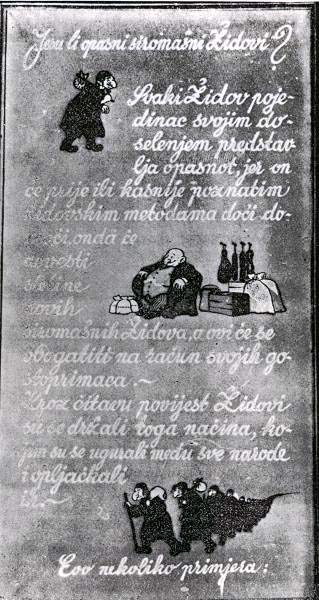 Jesu li opasni siromašni Židovi?
Svaki Židov poje-
dinac svojim do-
selenjem predstav-
lja opasnot, jer on
će prije ili kasnije poznatim
židovskim metodama doći do
onda će
dovesti
novih
siromašnih Židova, a ovi će se
obogatiti na račun svojih go-
stoprimaca.~
Kroz čitavu povijest Židovi
su se držali toga načina, ko-
jim su se ugurali među sve narode
i opljačkali
ih.~
Evo nekoliko primjera: